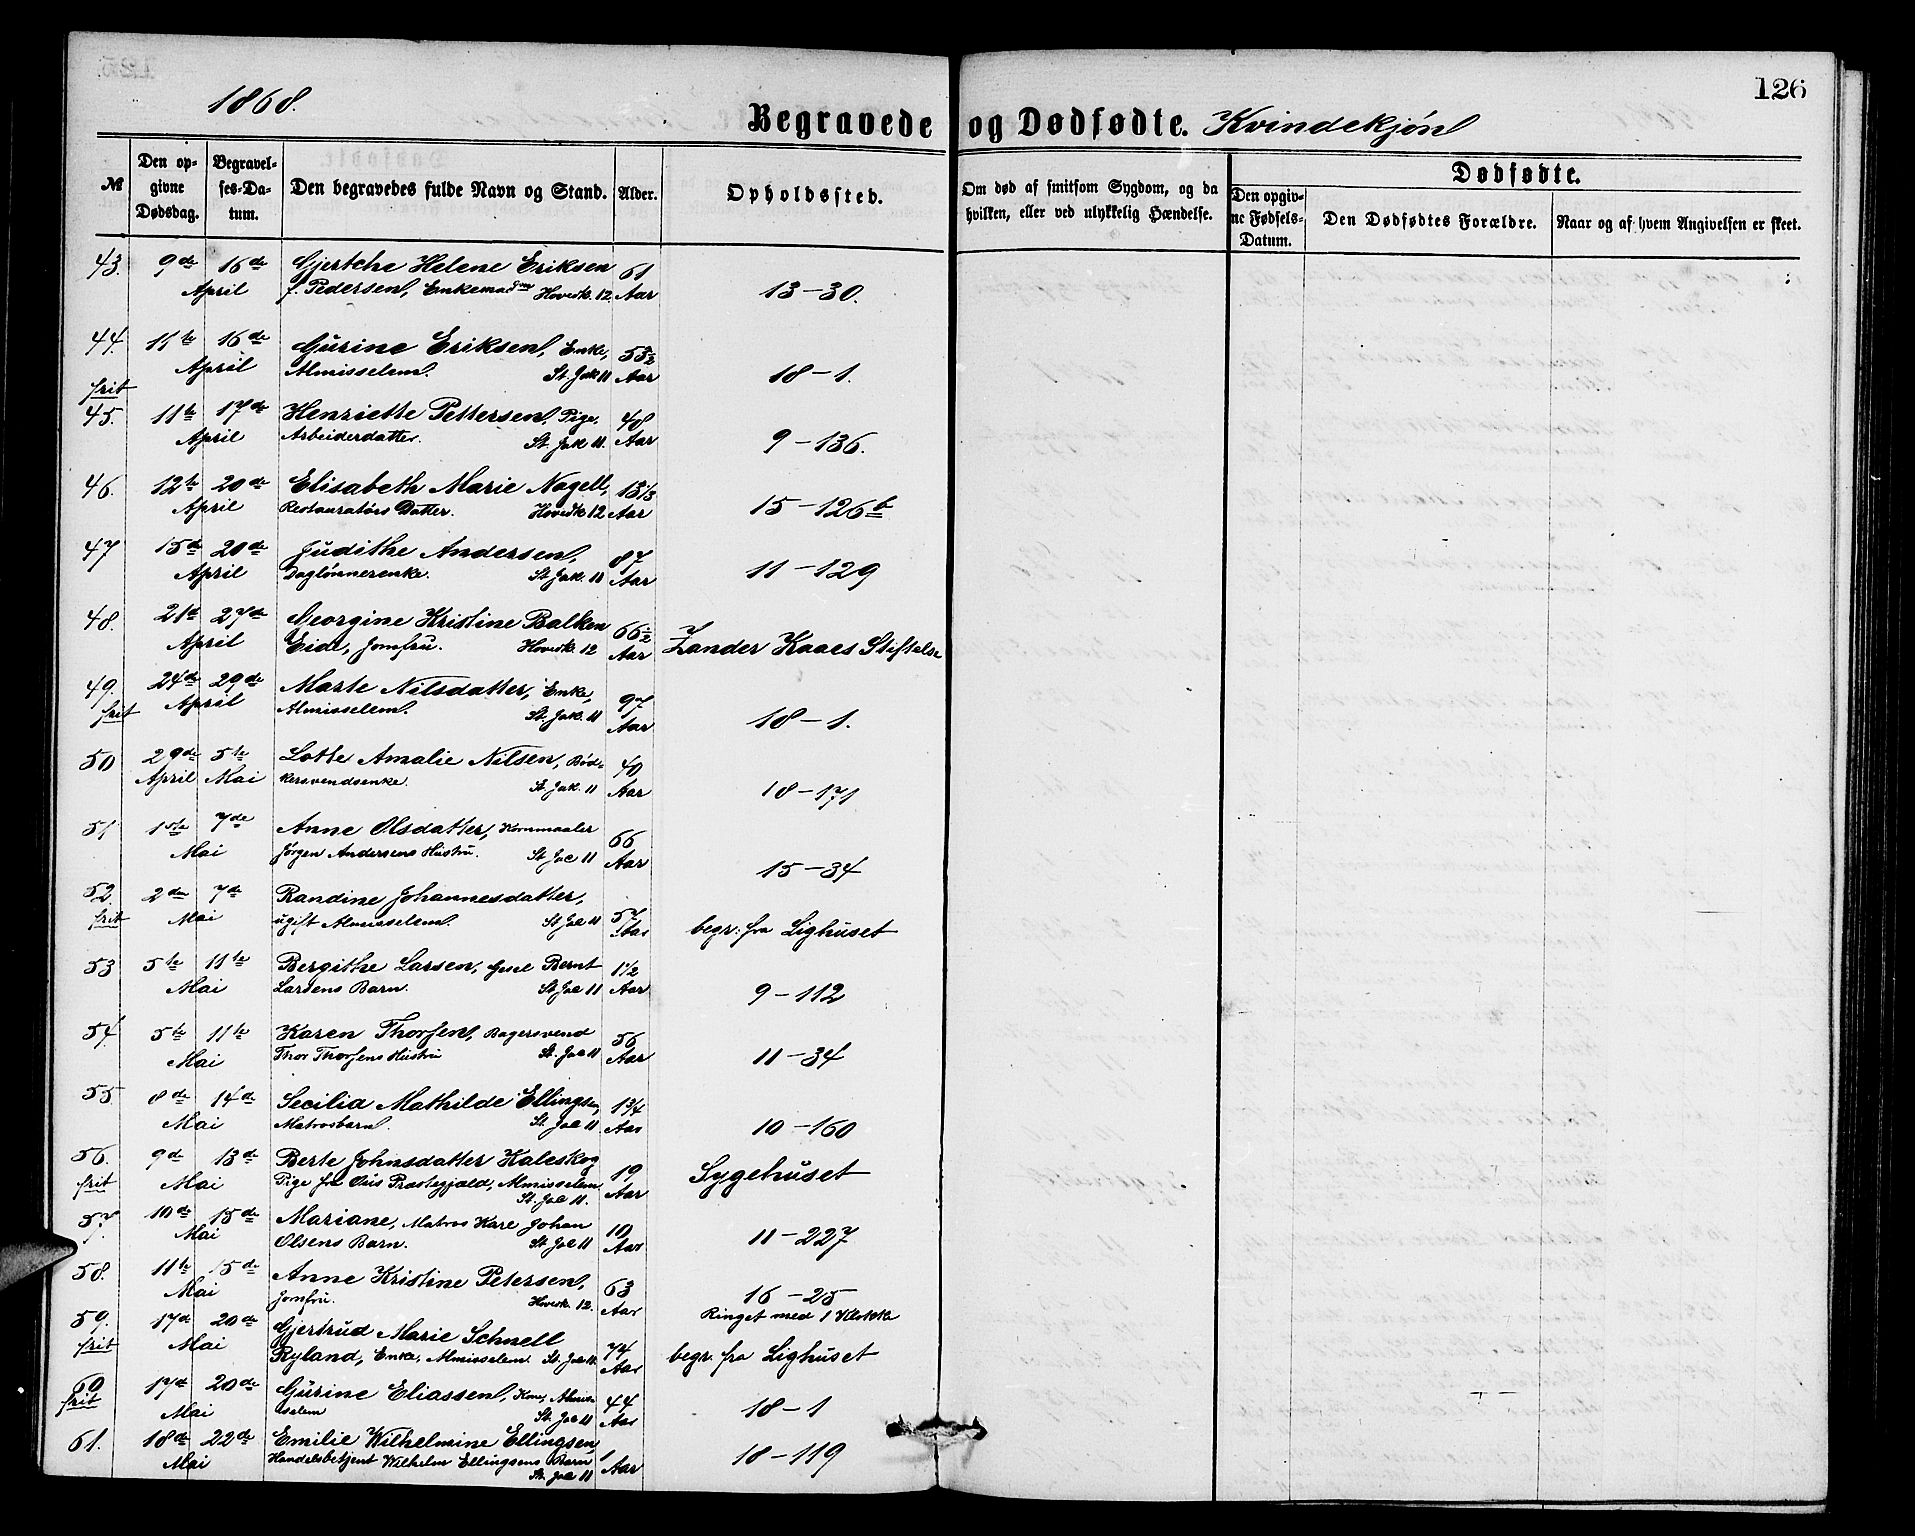 126
1868.
Begravede og Dødfødte. Kvindekjøn
№
Den op-
givne
Dødsdag.
Begravel-
ses-Da-
tum.
Den begravedes fulde Navn og Stand.
Alder.
Opholdssted.
Om død af smitsom Sygdom, og da
hvilken, eller ved ulykkelig Hændelse.
Dødfødte.
Den opgiv-
ne Fødsels-
Datum.
Den Dødfødtes Forældre.
Naar og af hvem Angivelsen er skeet.
43. 9de 16de Gjertche Helene Eriksen 61
April f. Pedersen, Enkemadm Hovedk. 12 Aar 13-30.
44. 11te 16de Gurine Eriksen, Enke, 55½
frit April Almisselem. St. Jak 11 Aar 18-1.
45. 11te 17de Henriette Pettersen, Pige, 48
April Arbeiderdatter. St. Jak 11. Aar 9-136.
46. 12te 20de Elisabeth Marie Nagell, 13⅓
April Restauratørs Datter. Hovedk 12 Aar 15-126b
47 15de 20de Judithe Andersen, 87
April Daglønnerenke. St. Jak. 11 Aar 11-129
48. 21de 27de Georgine Kristine Balken 66½
April Eide, Jomfru. Hovedk. 12 Aar Zander Kaaes Stiftelse
49. 24de 29de Marte Nilsdatter, Enke, 97
frit April Almisselem. St. Jak. 11 Aar 18-1.
50 29de 5te Lotte Amalie Nilsen, Bød- 40
April Mai kersvendsenke. St. Jak. 11 Aar 18-171
51 1ste 7de Anne Olsdatter, Kornmaaler 66
Mai Jørgen Andersens Hustru. St. Jac 11 Aar 15-34
52. 2den 7de Randine Johannesdatter, 57
frit Mai ugift Almisselem. St Jac 11 Aar begr: fra Lighuset
53 5te 11te Bergithe Larsen, Gesel Bernt 1½
Mai Larsens Barn. St Jac 11 Aar 9-112
54 5te 11te Karen Thorsen, Bagersvend 56
Mai Thor Thorsens Hustru St. Jac 11 Aar 11-34
55 8de 14de Secilia Mathilde Ellingsen, 1¾
Mai Matrosbarn. St. Jac 11 Aar 10-160
56. 9de 13de Berte Johnsdatter Kaleskog 19
frit Mai Pige fra Præstegjæld, Almisselem, Aar Sygehuset
St. Jac 11.
57. 10de 15de Mariane, Matros Kare Johan 10
Mai Olsens Barn. St. Jac 11 Aar 11-227
58. 11te 15de Anne Kristine Petersen, 63
Mai Jomfru. Hovedk. 12. Aar 16-25
Ringet med 1 Klokke
59. 17de 20de Gjertrud Marie Schnell 74
frit Mai Ryland, Enke, Almisselem. St. Jac 11. Aar begr. fra Lighuset
60 17de 20de Gurine Eliassen, Kone, Almis- 44
frit Mai selem St. Jac 11 Aar 18-1
61. 18de 22de Emilie Wilhelmine Ellingsen, 1
Mai Handelsbetjent Wilhelm Ellingsens Barn Aar 18-119
St. Jac 11